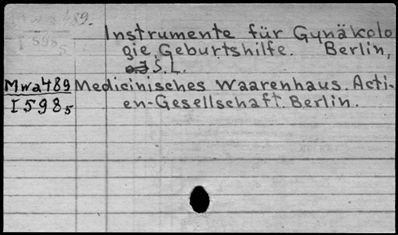 Mwa489.
I5985
Instrumente für Gynäkolo
gie, Geburtshilfe. Berlin,
S.L.
Mwa489 Medicinisches Waarenhaus. Acti-
I5985 en-Gesellschaft. Berlin.